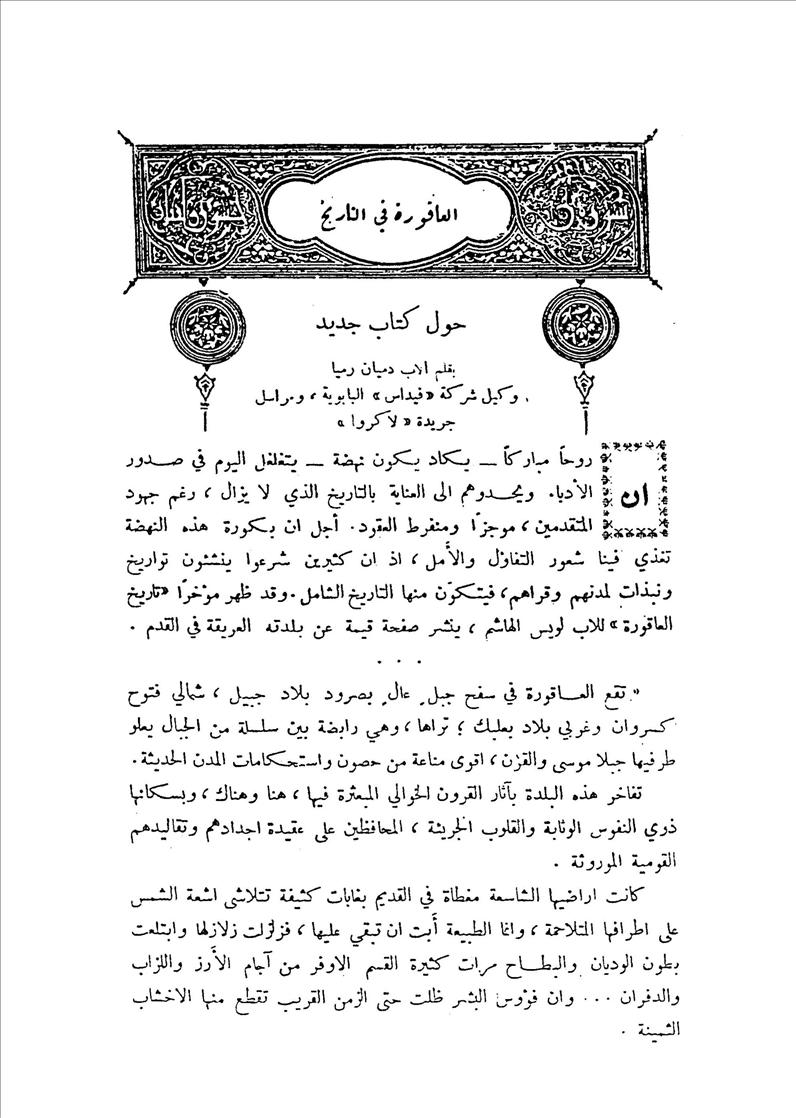 العاقورة في التاريخ
حول كتاب جديد
بقلم الاب دميان رميا
وكيل شركة «فيداس» البابوية ، ومراسل
جريدة «لاكروا»
ان روحاً مباركاً — يكاد يكون نهضة — يتغلغل اليوم في صدور
الأدباء ويحدوهم الى العناية بالتاريخ الذي لا يزال ، رغم جهود
المتقدمين ، موجزاً ومنفرط العقود . أجل ان بكورة هذه النهضة
تغذي فينا شعور التفاؤل والأمل ، اذ ان كثيرين شرعوا ينشئون تواريخ
ونبذات لمدنهم وقراهم ، فيتكوّن منها التاريخ الشامل . وقد ظهر مؤخراً «تاريخ
العاقورة» للاب لويس الهاشم ، ينشر صفحة قيمة عن بلدته العريقة في القدم .
. . .
« تقع العاقورة في سفح جبلٍ عالٍ بصرود بلاد جبيل ، شمالي فتوح
كسروان وغربي بلاد بعلبك ؛ تراها ، وهي رابضة بين سلسلة من الجبال يعلو
طرفيها جبلا موسى والقرن ، اقوى مناعة من حصون واستحكامات المدن الحديثة .
تفاخر هذه البلدة بآثار القرون الخوالي المبعثرة فيها ، هنا وهناك ، وبسكانها
ذوي النفوس الوثابة والقلوب الجريئة ، المحافظين على عقيدة اجدادهم وتقاليدهم
القومية الموروثة .
كانت اراضيها الشاسعة مغطاة في القديم بغابات كثيفة تتلاشى اشعة الشمس
على اطرافها المتلاحمة ، وانما الطبيعة أبت ان تبقي عليها ، فزلزلت زلازلها وابتلعت
بطون الوديان والبطاح مرات كثيرة القسم الاوفر من آجام الأرز واللزاب
والدفران ... وان فؤوس البشر ظلت حتى الزمن القريب تقطع منها الاخشاب
الثمينة .